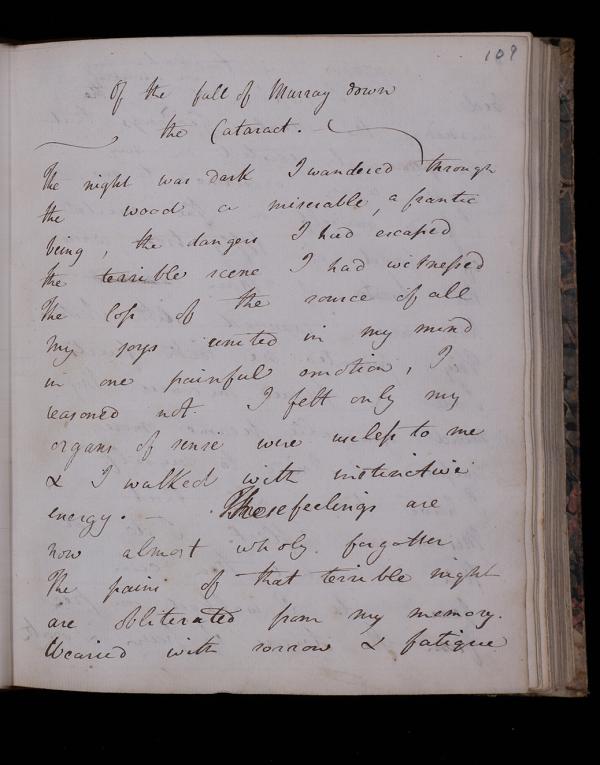 109
Of the fall of Murray down
the Cataract. —
The night was dark I wandered through
the wood a miserable, a frantic
being, the dangers I had escaped
the terrible scene I had witnessed
The loss of the source of all
my joys united in my mind
in one painful emotion, I
reasoned not. I felt only my
organs of sense were useless to me
& I walked with instinctive
energy. — These feelings are
now almost wholy forgotten
The pains of that terrible night
are obliterated from my memory.
Wearied with sorrow & fatigue